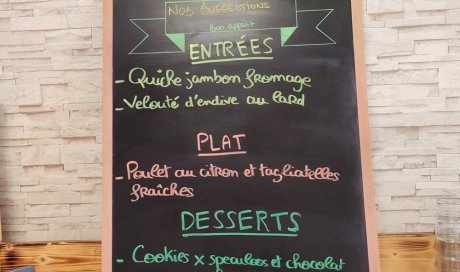 Nos Suggestions
Bon appétit
ENTRÉES
- Quiche jambon fromage
- Velouté d'endive au lard
PLAT
- Poulet au citron et tagliatelles
fraîches
DESSERTS
- Cookies x speculoos et chocolat